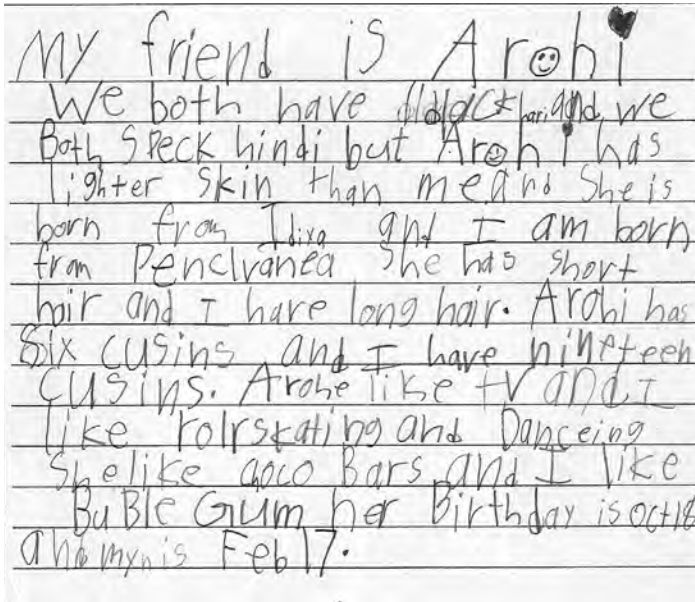 My friend is Arohi
We both have black hari and we
Both speck hindi but Arohi has
lighter skin than me and She is
born from Idiya and I am born
from Penclvanea She has short
hair and I have long hair. Arohi has
Six cusins and I have nineteen
cusins. Arohe like tV and I
like rolrskating and Danceing
She like coco Bars and I like
BuBle Gum her Birthday is oct 18
and myn is Feb 17.